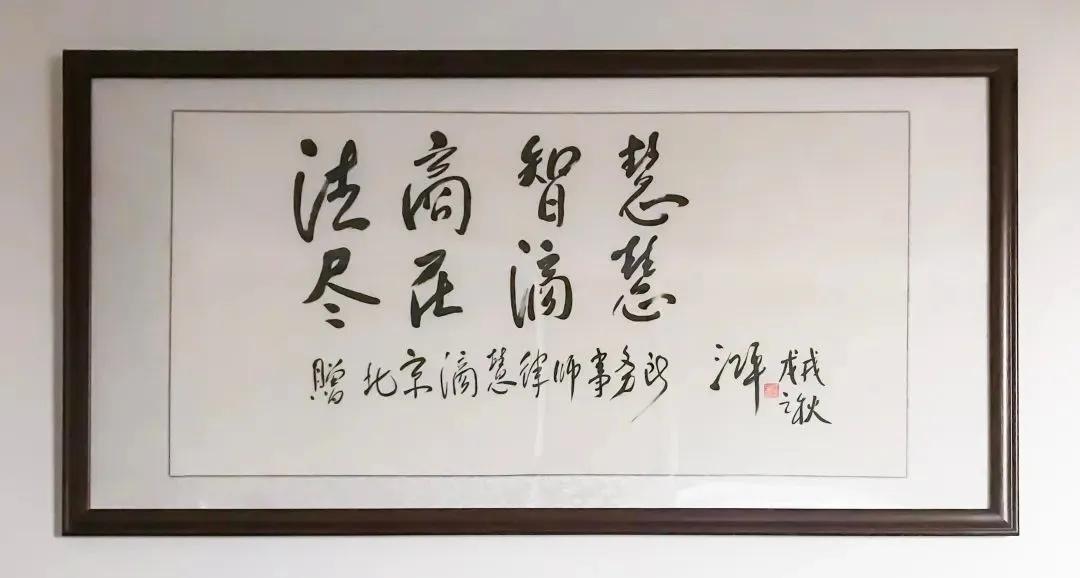 法商智慧
尽在滴慧
赠北京滴慧律师事务所
江平
戊戌
之秋